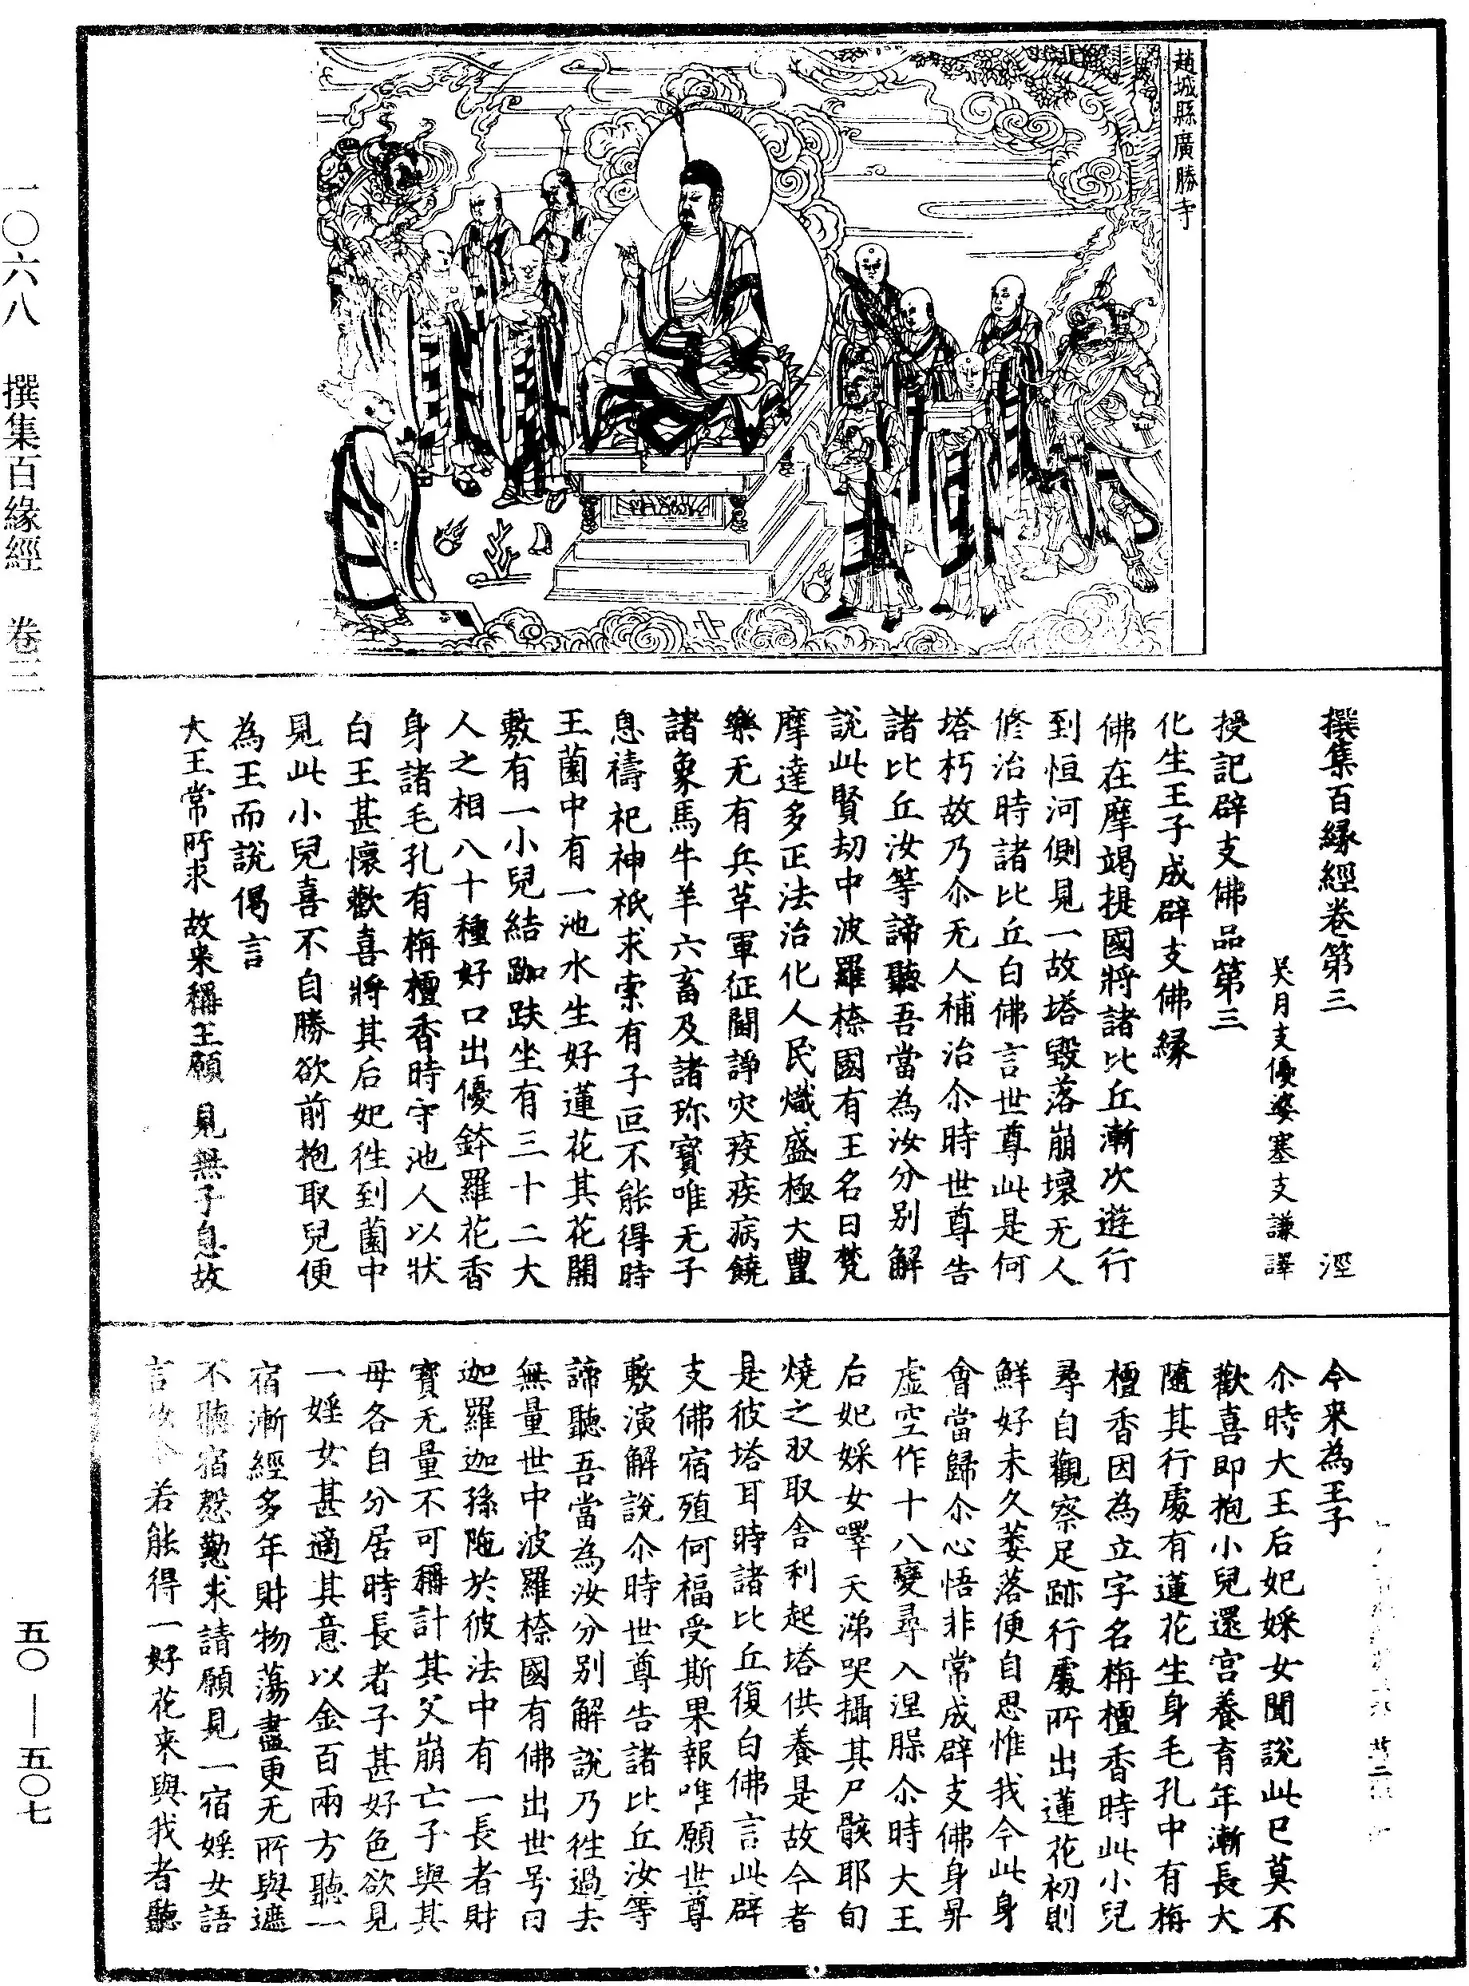 趙城縣廣勝寺
撰集百緣經卷第三 涇
吳月支優婆塞支謙譯
授記辟支佛品第三
化生王子成辟支佛緣
佛在摩竭提國將諸比丘漸次遊行
到恒河側見一故塔毀落崩壞无人
修治時諸比丘白佛言世尊此是何
塔朽故乃尒无人補治尒時世尊告
諸比丘汝等諦聽吾當為汝分別解
說此賢劫中波羅㮈國有王名曰梵
摩達多正法治化人民熾盛極大豐
樂无有兵革軍征鬪諍灾疫疾病饒
諸象馬牛羊六畜及諸珎寶唯无子
息禱祀神祇求索有子叵不能得時
王薗中有一池水生好蓮花其花開
敷有一小兒結跏趺坐有三十二大
人之相八十種好口出優鉢羅花香
身諸毛孔有栴檀香時守池人以狀
白王甚懷歡喜將其后妃徃到薗中
見此小兒喜不自勝欲前抱取兒便
為王而說偈言
大王常所求 故来稱王願 見無子息故
今来為王子
尒時大王后妃婇女聞說此已莫不
歡喜即抱小兒還宮養育年漸長大
隨其行處有蓮花生身毛孔中有栴
檀香因為立字名栴檀香時此小兒
尋自觀察足跡行處所出蓮花初則
鮮好未久萎落便自思惟我今此身
會當歸尒心悟非常成辟支佛身昇
虛空作十八變尋入涅槃尒時大王
后妃婇女嘷天涕哭攝其尸骸耶旬
燒之收取舍利起塔供養是故今者
是彼塔耳時諸比丘復白佛言此辟
支佛宿殖何福受斯果報唯願世尊
敷演解說尒時世尊告諸比丘汝等
諦聽吾當為汝分別解說乃徃過去
無量世中波羅㮈國有佛出世号曰
迦羅迦孫陁於彼法中有一長者財
寶无量不可稱計其父崩亡子與其
母各自分居時長者子甚好色欲見
一婬女甚適其意以金百兩方聽一
宿漸經多年財物蕩盡更无所與遮
不聽宿慇懃求請願見一宿婬女語
言 若能得一好花来與我者聽
一〇六八 撰集百緣經 卷三
五〇—五〇七